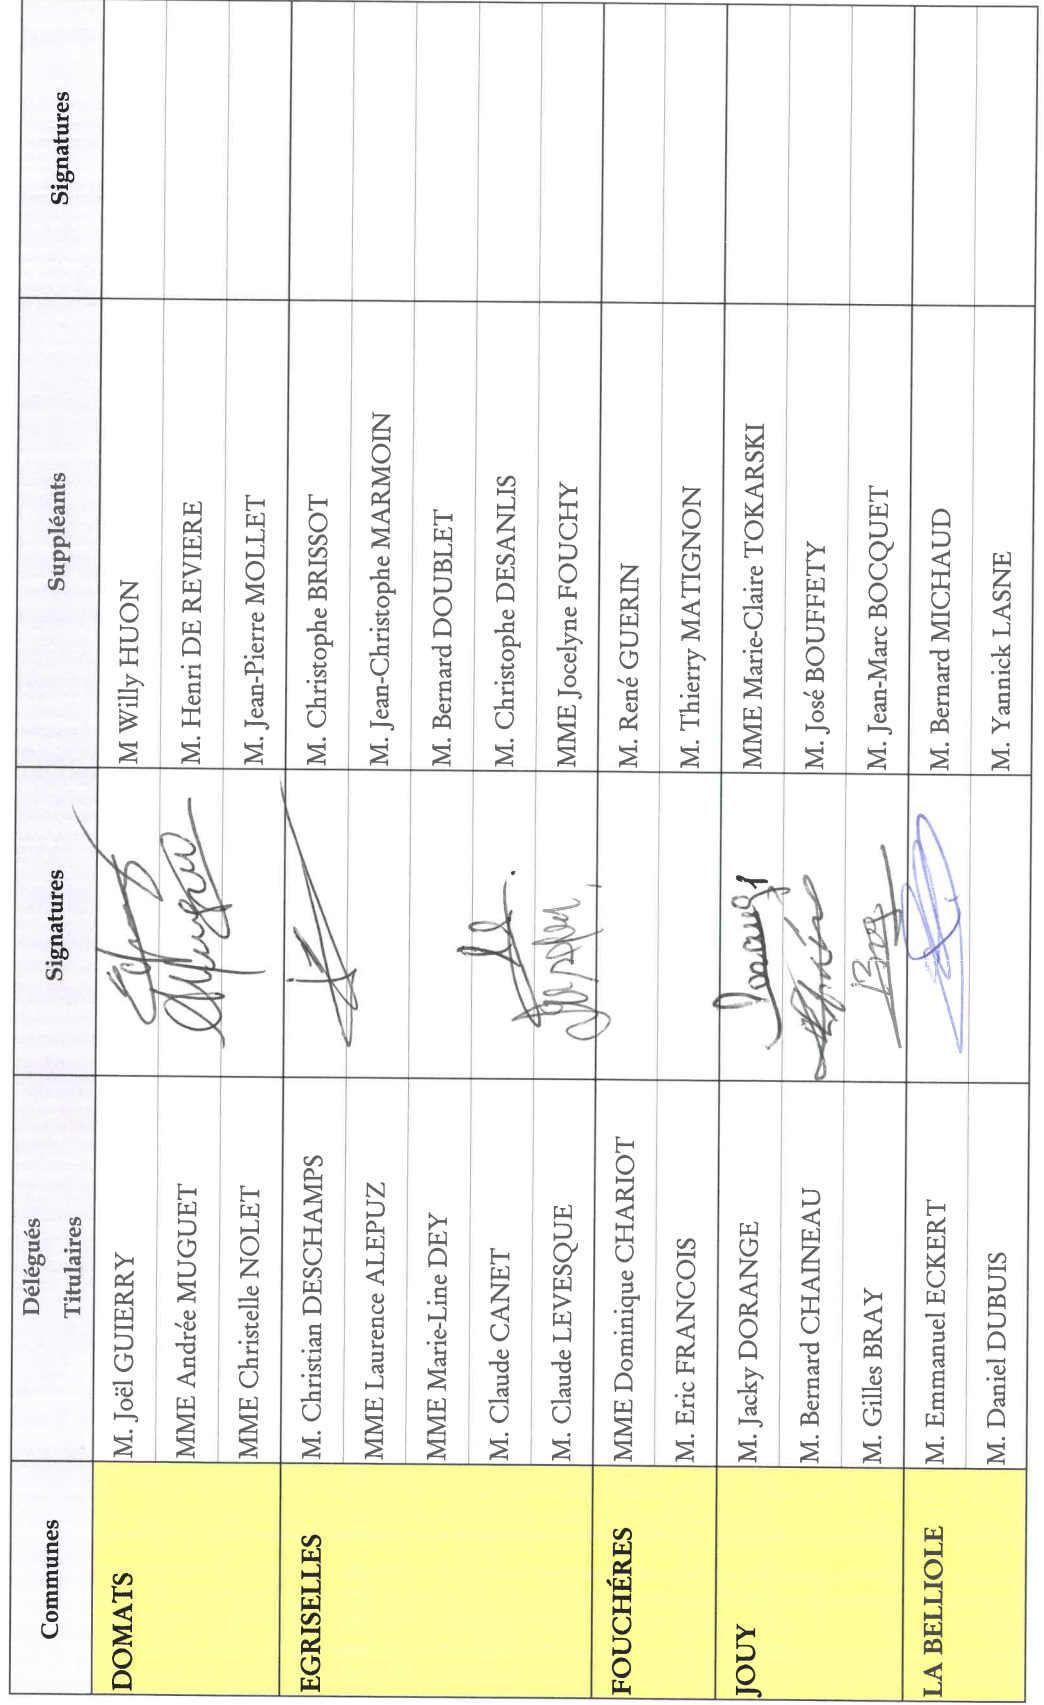 Communes Délégués Titulaires Signatures Suppléants Signatures
DOMATS M. Joël GUIERRY M Willy HUON
MME Andrée MUGUET M. Henri DE REVIERE
MME Christelle NOLET M. Jean-Pierre MOLLET
EGRISELLES M. Christian DESCHAMPS M. Christophe BRISSOT
MME Laurence ALEPUZ M. Jean-Christophe MARMOIN
MME Marie-Line DEY M. Bernard DOUBLET
M. Claude CANET M. Christophe DESANLIS
M. Claude LEVESQUE MME Jocelyne FOUCHY
FOUCHÉRES MME Dominique CHARIOT M. René GUERIN
M. Eric FRANCOIS M. Thierry MATIGNON
JOUY M. Jacky DORANGE MME Marie-Claire TOKARSKI
M. Bernard CHAINEAU M. José BOUFFETY
M. Gilles BRAY M. Jean-Marc BOCQUET
LA BELLIOLE M. Emmanuel ECKERT M. Bernard MICHAUD
M. Daniel DUBUIS M. Yannick LASNE